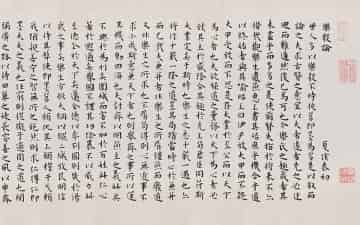 樂毅論 夏侯泰初
世人多以樂毅不時拔莒即墨為劣是以敘而
論之夫求古賢之意宜以大者遠者先之必迂
迴而難通然後已焉可也今樂氏之趣或者其
未盡乎而多劣之是使前賢失指於將來不亦
惜哉觀樂生遺燕惠王書其殆庶乎機合乎道
以終始者與其喻昭王曰伊尹放大甲而不疑
大甲受放而不怨是存大業於至公而以天下
為心者也夫欲極道之量務以天下為心者必
致其主於盛隆合其趣於先王苟君臣同符斯
大業定矣于斯時也樂生之志千載一遇也亦將
行千載一隆之道豈其局蹟當時止於兼并
而已哉夫兼并者非樂生之所屑彊燕而廢道
又非樂生之所求也不屑苟得則心無近事不
求小成斯意兼天下者也則舉齊之事所以運
其機而動四海也夫討齊以明燕主之義此兵
不興於為利矣圍城而害不加於百姓此仁心
著於遐邇矣舉國不謀其功除暴不以威力此
至德令於天下矣邁至德以率列國則幾於湯
武之事矣樂生方恢大綱以縱二城牧民明信
以待其弊使即墨莒人顧仇其上願釋干戈賴
我猶親善守之智無所之施然則求仁得仁即
墨大夫之義也任窮則從微子適周之道也開
彌廣之路以待田單之徒長容善之風以申齊